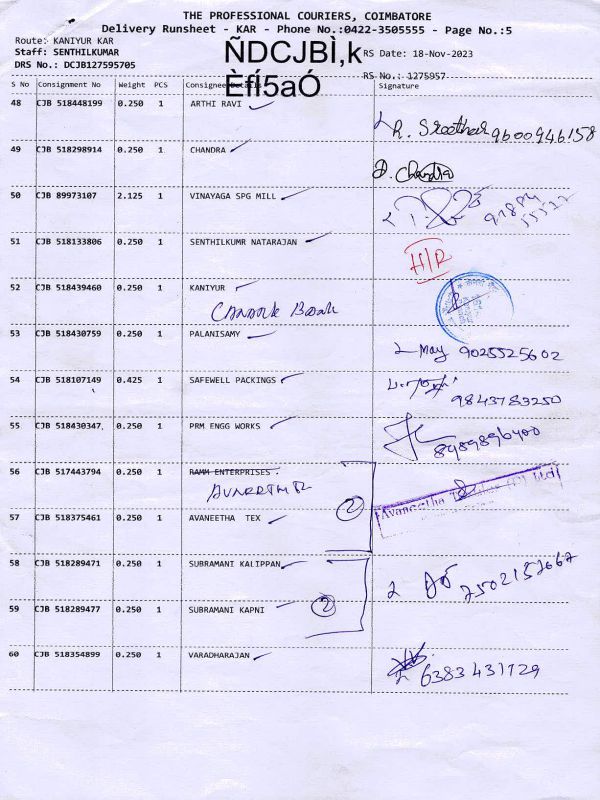 THE PROFESSIONAL COURIERS, COIMBATORE
Delivery Runsheet - KAR - Phone No.:0422-3505555 - Page No.:5
Route: KANIYUR KAR
Staff: SENTHILKUMAR
ÑDCJBÌ,k
RS Date: 18-Nov-2023
DRS No.: DCJB127595705
ÈfÍ5aÓ
RS No.: 1275957
S No Consignment No Weight PCS Consignee Details Signature
48 CJB 518448199 0.250 1 ARTHI RAVI
R. Sreethar 9600946158
49 CJB 518298914 0.250 1 CHANDRA
D. Chandra
50 CJB 89973107 2.125 1 VINAYAGA SPG MILL
51 CJB 518133806 0.250 1 SENTHILKUMR NATARAJAN
H/R
52 CJB 518439460 0.250 1 KANIYUR
Canara Bank
53 CJB 518430759 0.250 1 PALANISAMY
May 9025525602
54 CJB 518107149 0.425 1 SAFEWELL PACKINGS
9843783250
55 CJB 518430347 0.250 1 PRM ENGG WORKS
8989896400
56 CJB 517443794 0.250 1 RAMM ENTERPRISES.
2
Avaneetha
57 CJB 518375461 0.250 1 AVANEETHA TEX
58 CJB 518289471 0.250 1 SUBRAMANI KALIPPAN
2
7502152667
59 CJB 518289477 0.250 1 SUBRAMANI KAPNI
60 CJB 518354899 0.250 1 VARADHARAJAN
6383431729